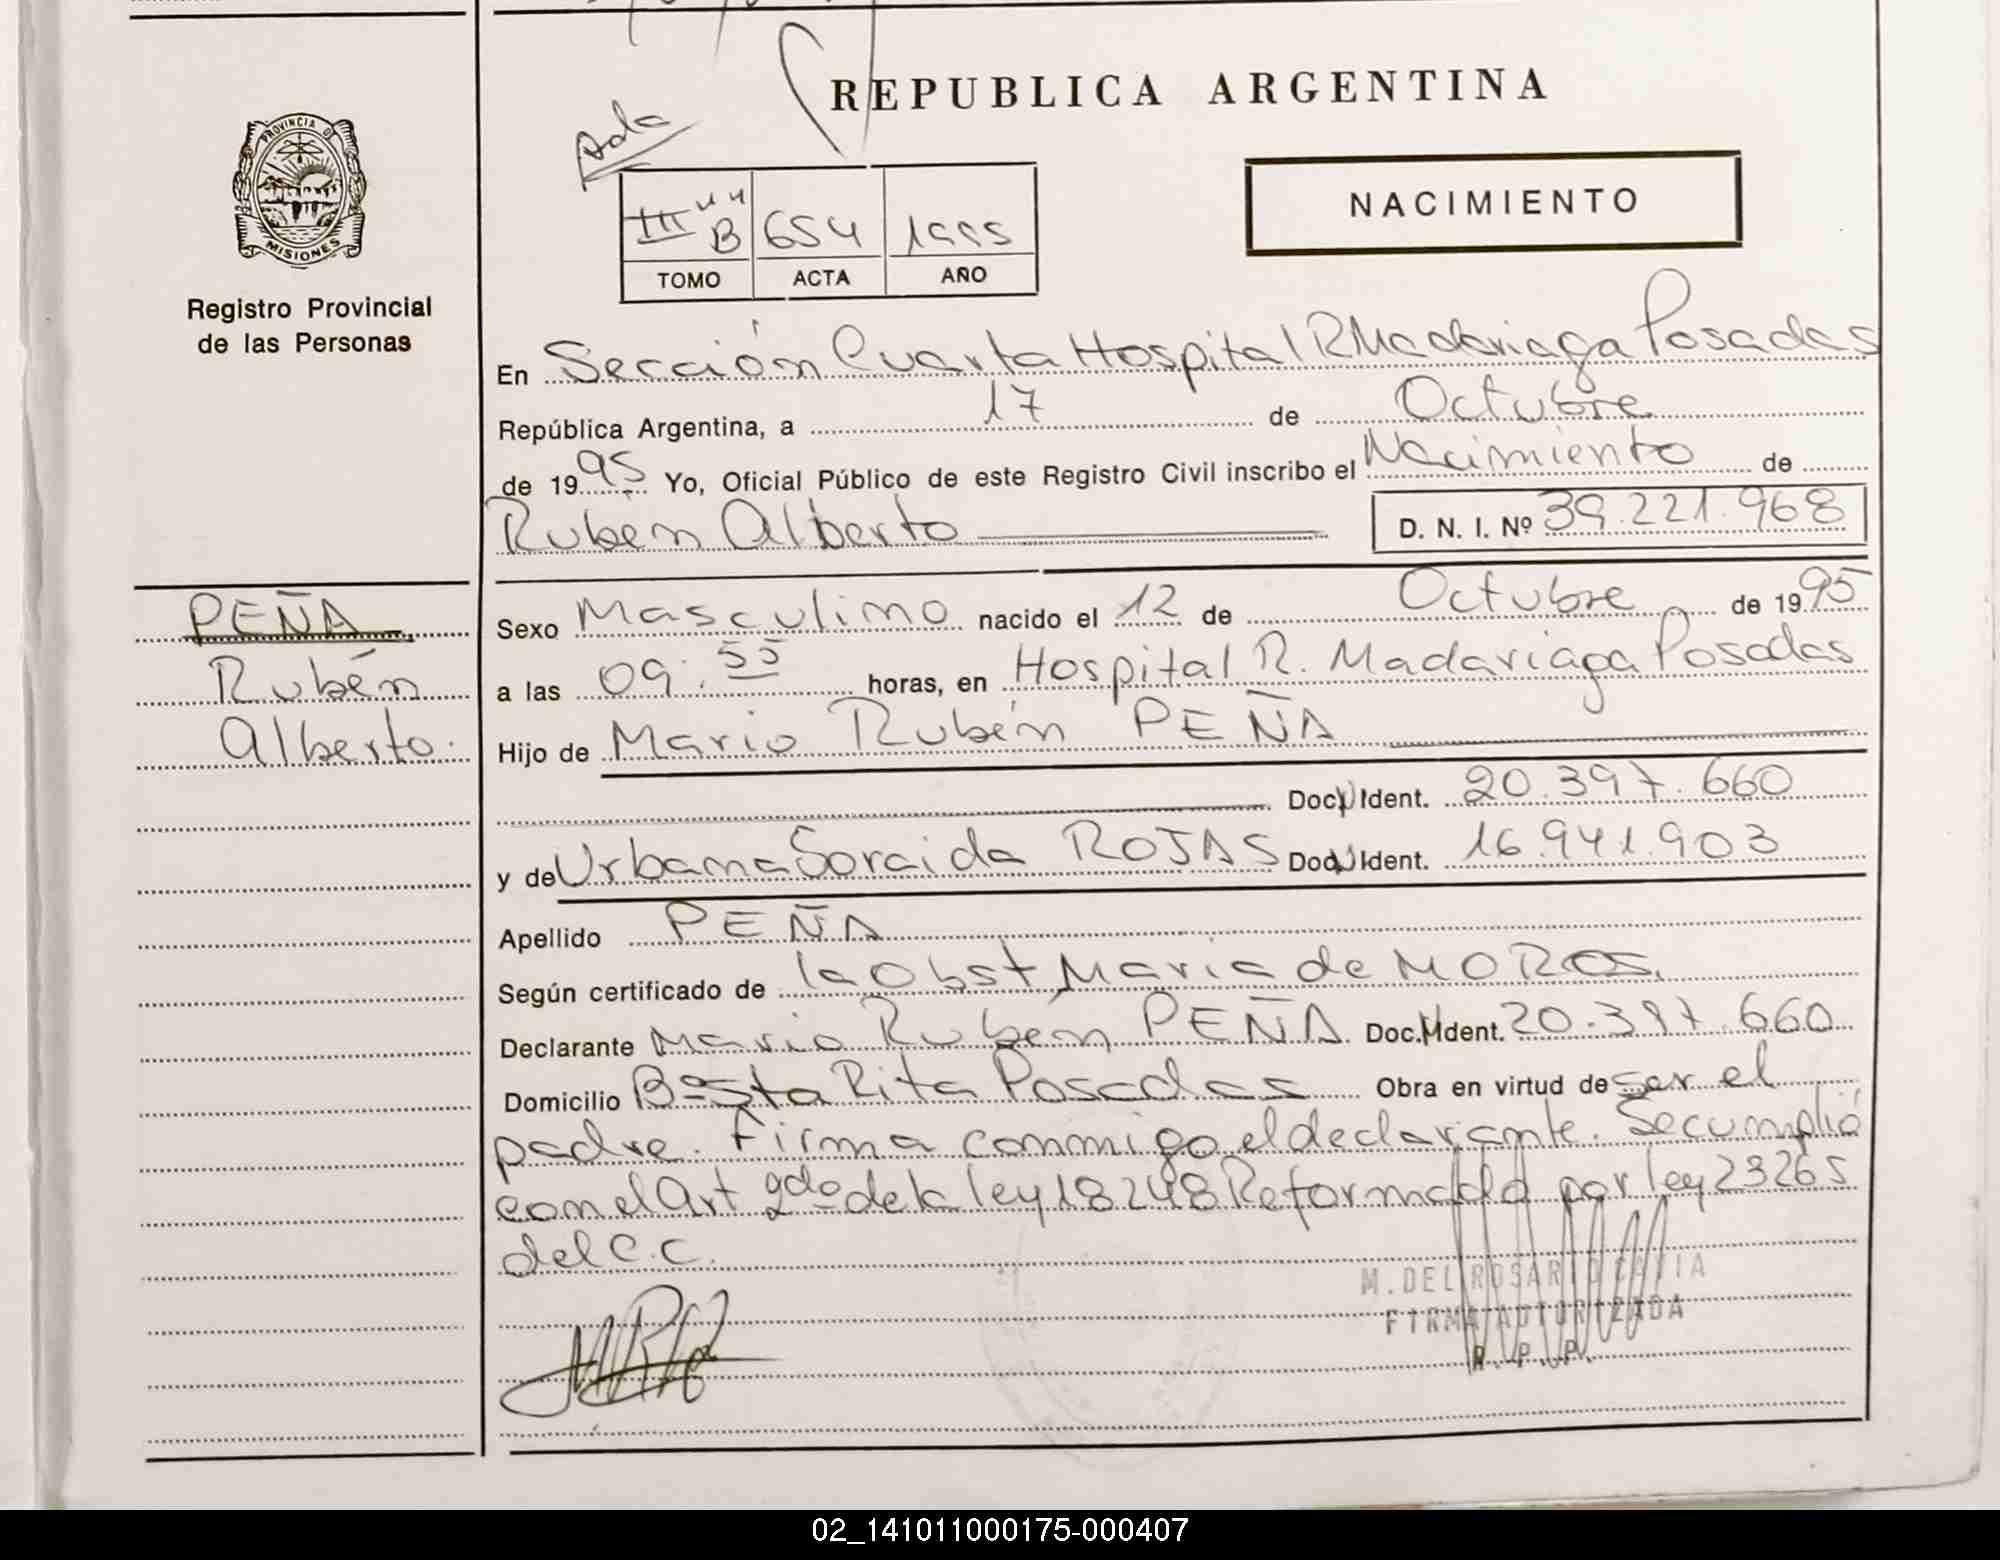 REPUBLICA ARGENTINA
PROVINCIA D
MISIONES
Registro Provincial
de las Personas
III "B" 654 1995
TOMO ACTA AÑO
NACIMIENTO
En Sección Cuarta Hospital R Madariaga Posadas
República Argentina, a 17 de Octubre
de 1995 Yo, Oficial Público de este Registro Civil inscribo el Nacimiento de
Rubén Alberto D. N. I. Nº 39.221.968
PEÑA
Rubén
Alberto.
Sexo Masculino nacido el 12 de Octubre de 1995
a las 09:55 horas, en Hospital R. Madariaga Posadas
Hijo de Mario Rubén PEÑA
Doc. Ident. 20.397.660
y de Urbana Soraida ROJAS Doc. Ident. 16.941.903
Apellido PEÑA
Según certificado de la Obst Maria de MOROS.
Declarante Mario Rubén PEÑA Doc. Ident. 20.397.660
Domicilio Bº Sta Rita Posadas Obra en virtud de ser el
padre. Firma conmigo el declarante. Se cumplió
con el Art 2do de la ley 18248 Reformada por ley 23265
del C.C.
M. DEL ROSARIO CAVIA
FIRMA AUTORIZADA
R. P. P.
02_141011000175-000407